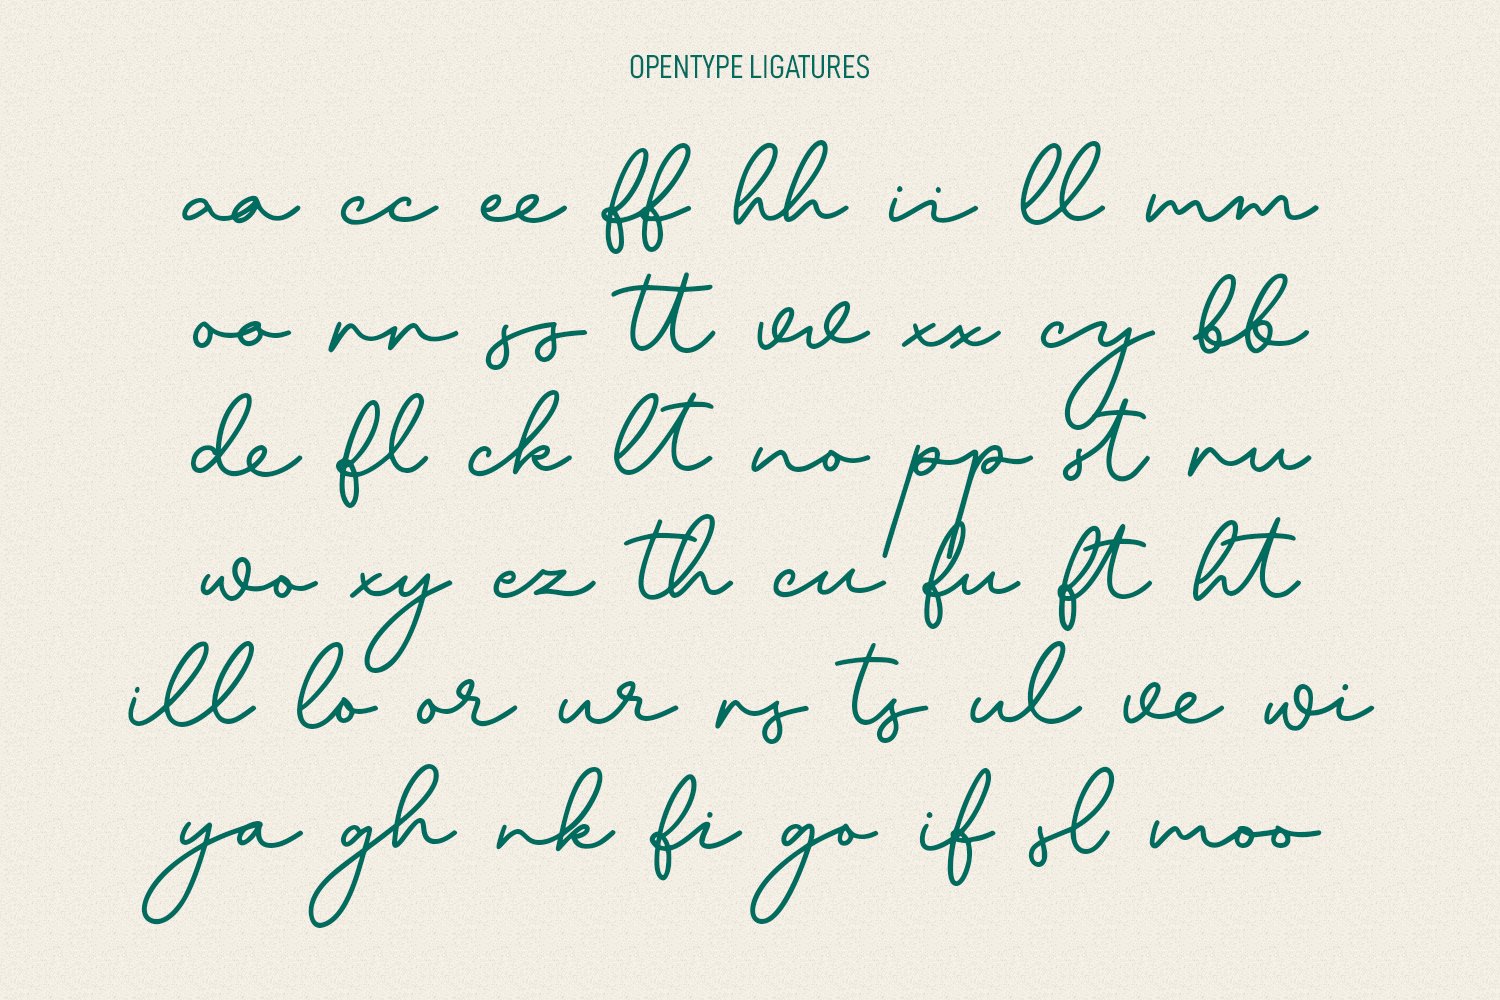 OPENTYPE LIGATURES
aa cc ee ff hh ii ll mm
oo nn ss tt vv xx cy bb
de fl ck lt no pp st nu
wo xy ez th cu fu ft ht
ill lo or ur ns ts ul ve wi
ya gh nk fi go if sl moo